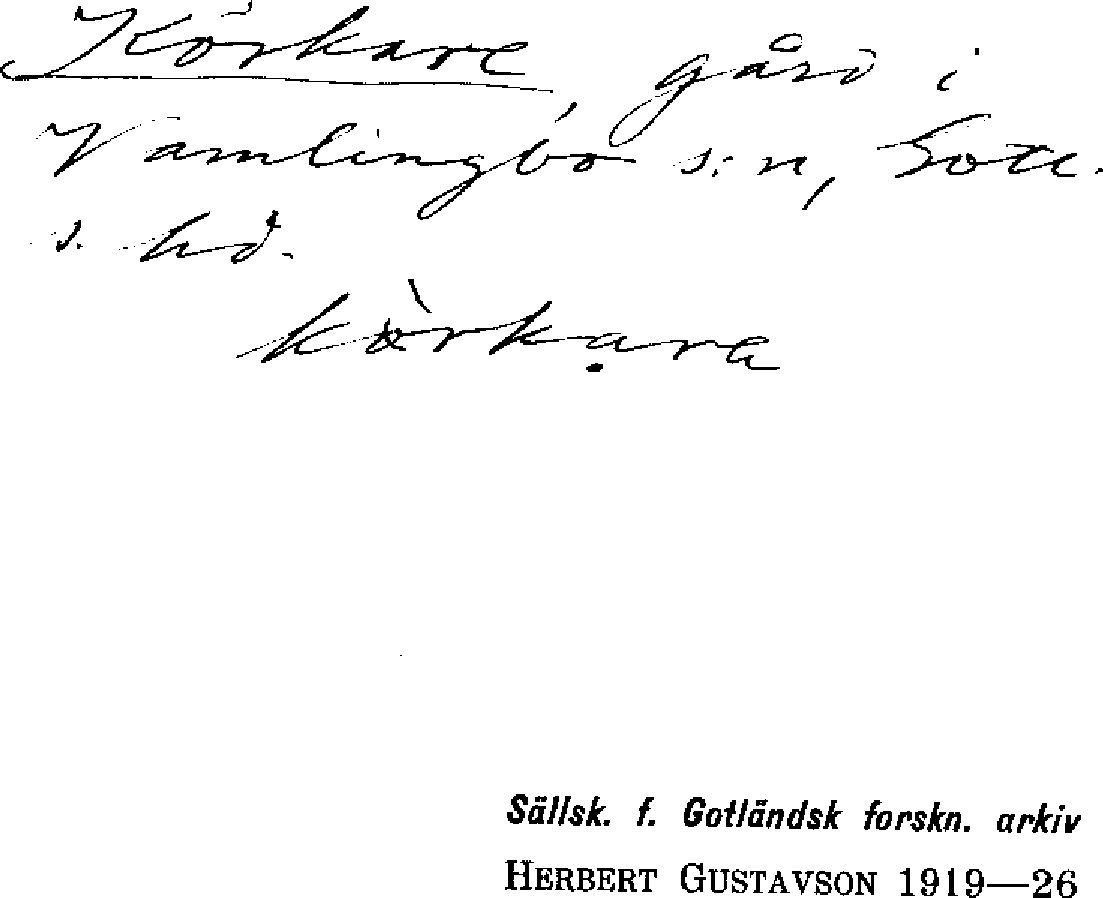 Körkare, gård i
Vamlingbo s:n, Gotl.
s. hd.
körkara
Sällsk. f. Gotländsk forskn. arkiv
HERBERT GUSTAVSON 1919—26